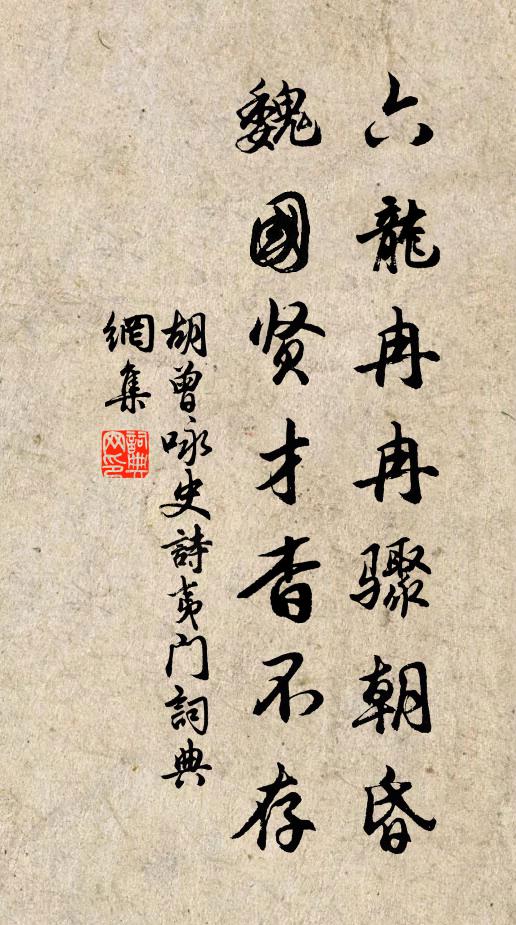 六龍冉冉驟朝昏
魏國贤才杳不存
胡曾咏史詩夷门詞典
網集
詞典网印